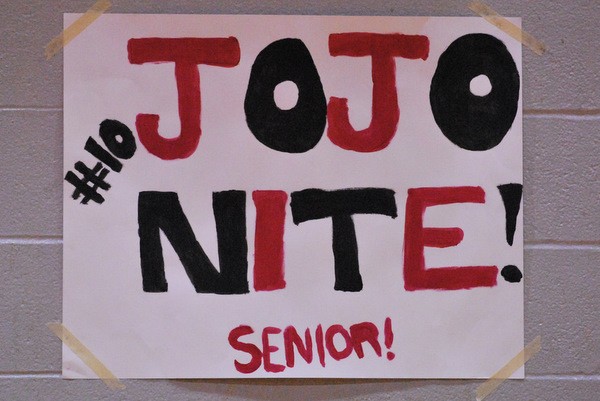 JOJO
#10
NITE!
SENIOR!